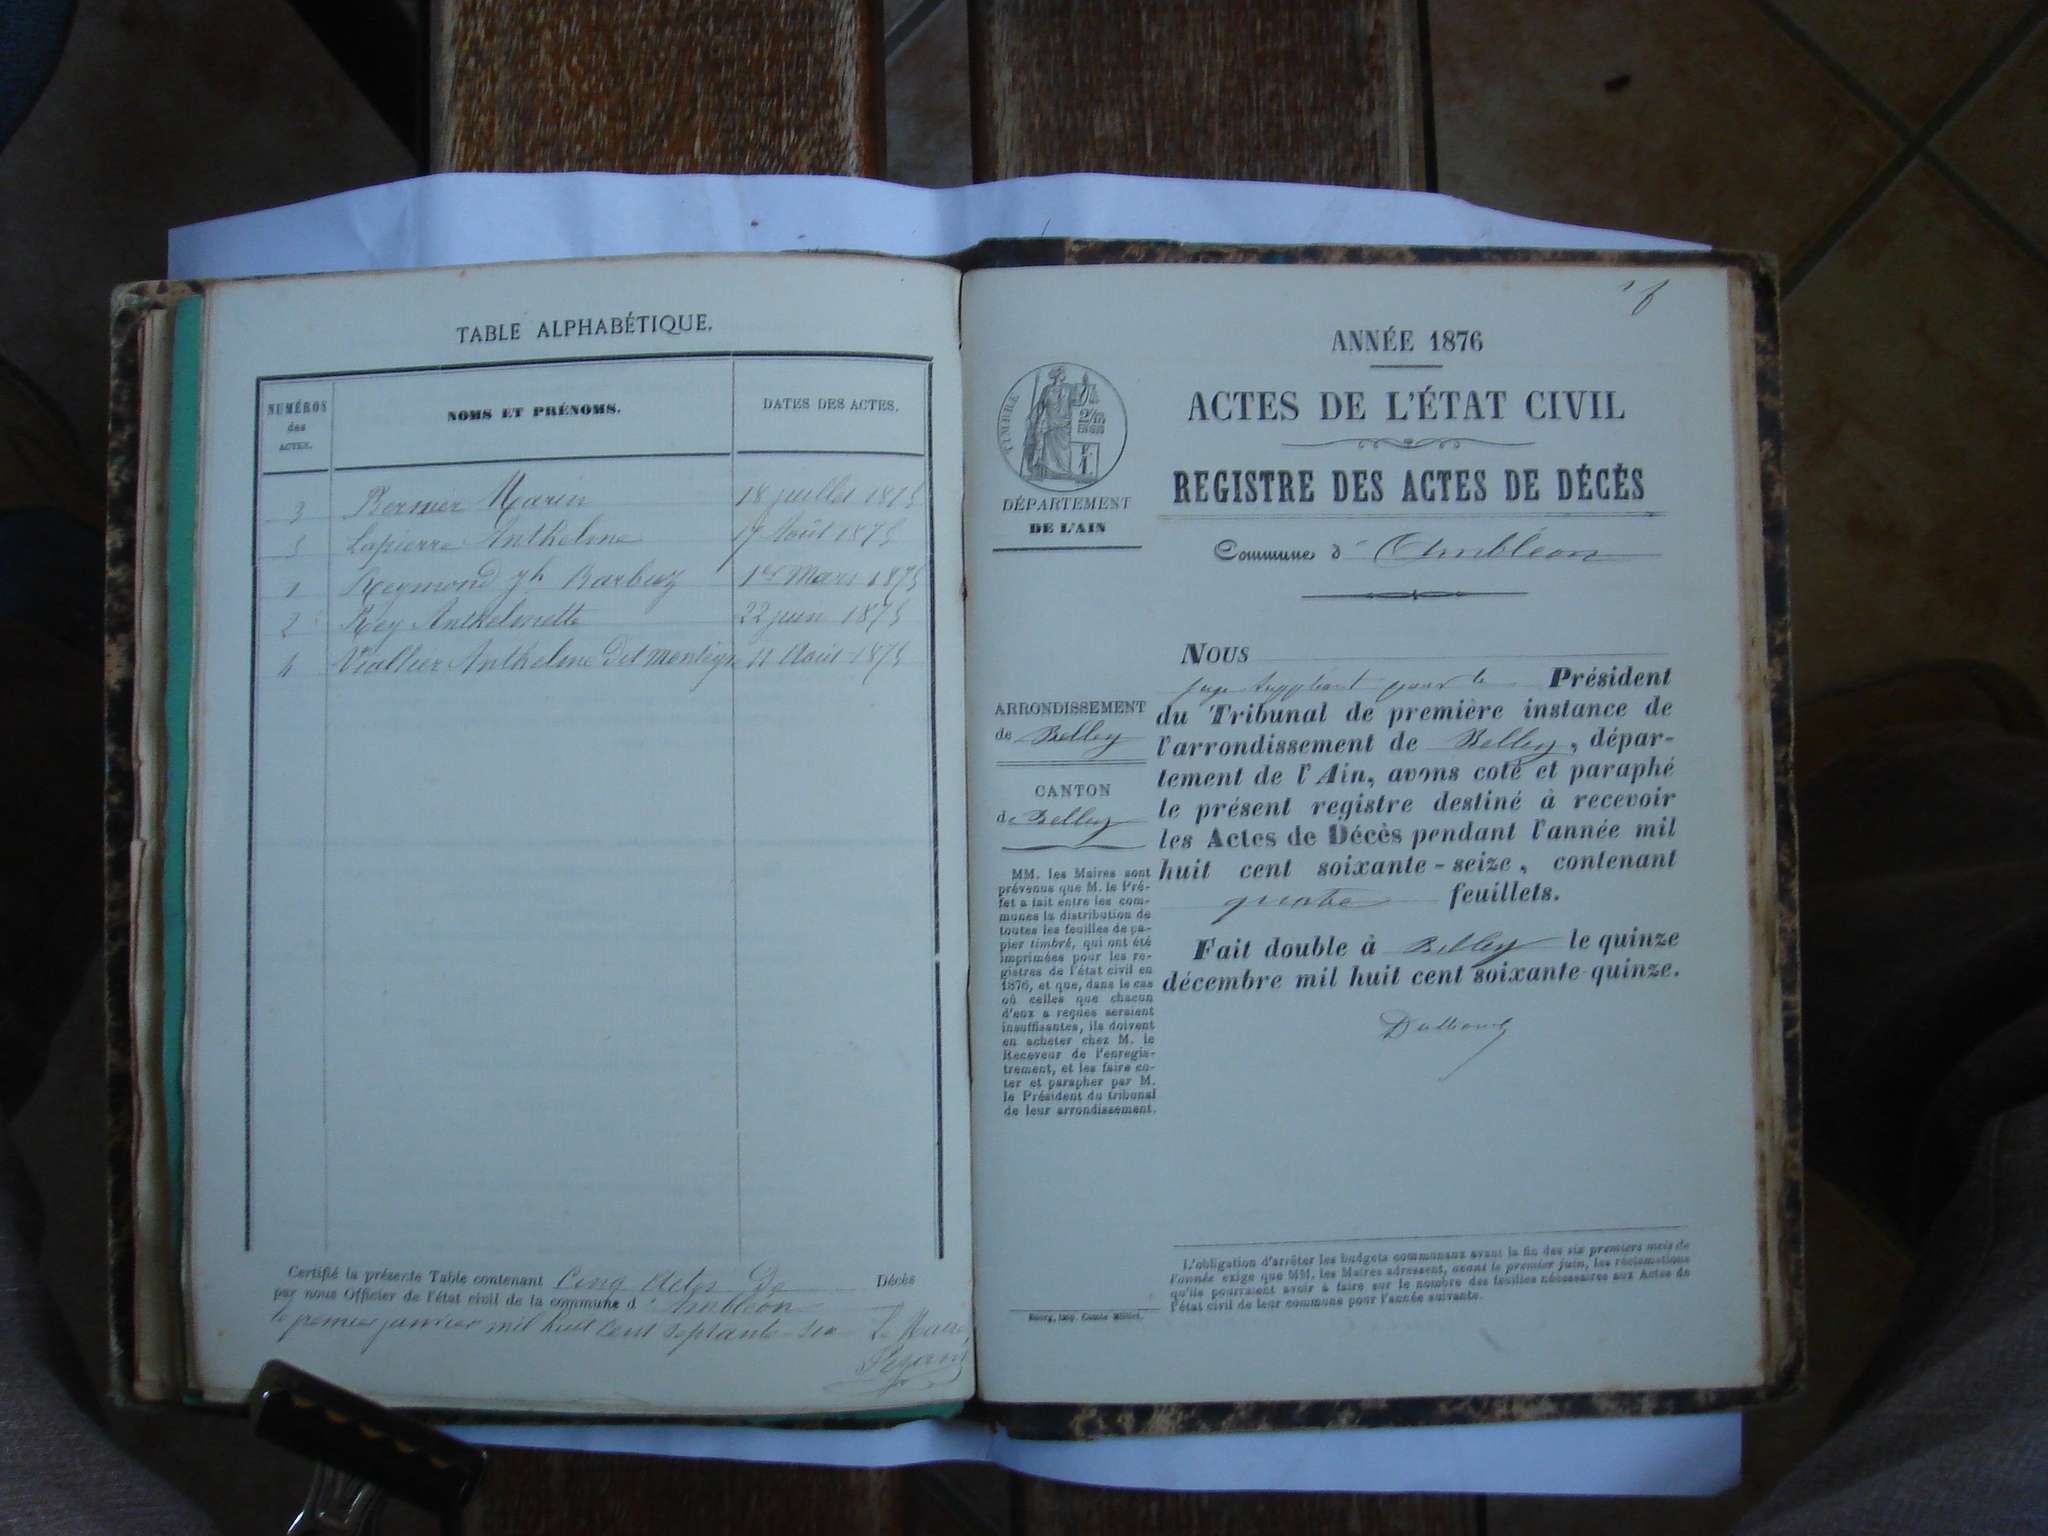 TABLE ALPHABÉTIQUE.
NUMÉROS
des
ACTES.
NOMS ET PRÉNOMS.
DATES DES ACTES.
3 Bernier Marin 18 juillet 1875
5 Lapierre Anthelme 17 Août 1875
1 Reymond jh Barbuz 1er Mars 1875
2 Rey Anthelmette 22 juin 1875
4 Viallier Anthelme dit 11 Août 1875
Certifié la présente Table contenant Cinq actes De Décès
par nous Officier de l'état civil de la commune d'Ambléon
le premier janvier mil huit cent septante-six Le Maire,
ANNÉE 1876
ACTES DE L'ÉTAT CIVIL
REGISTRE DES ACTES DE DÉCÈS
Commune d'Ambléon
TIMBRE
2/10
EN SUS
DÉPARTEMENT
DE L'AIN
ARRONDISSEMENT
de Belley
CANTON
de Belley
MM. les Maires sont
prévenus que M. le Pré-
fet a fait entre les com-
munes la distribution de
toutes les feuilles de pa-
pier timbré, qui ont été
imprimées pour les re-
gistres de l'état civil en
1876, et que, dans le cas
où celles que chacun
d'eux a reçues seraient
insuffisantes, ils doivent
en acheter chez M. le
Receveur de l'enregis-
trement, et les faire co-
ter et parapher par M.
le Président du tribunal
de leur arrondissement.
NOUS
juge suppléant pour le Président
du Tribunal de première instance de
l'arrondissement de Belley, dépar-
tement de l'Ain, avons coté et paraphé
le présent registre destiné à recevoir
les Actes de Décès pendant l'année mil
huit cent soixante-seize, contenant
quatre feuillets.
Fait double à Belley le quinze
décembre mil huit cent soixante-quinze.
L'obligation d'arrêter les budgets communaux avant la fin des six premiers mois de
l'année exige que MM. les Maires adressent, avant le premier juin, les réclamations
qu'ils pourraient avoir à faire sur le nombre des feuilles nécessaires aux Actes de
l'état civil de leur commune pour l'année suivante.
Bourg, imp. Comte Milliet.